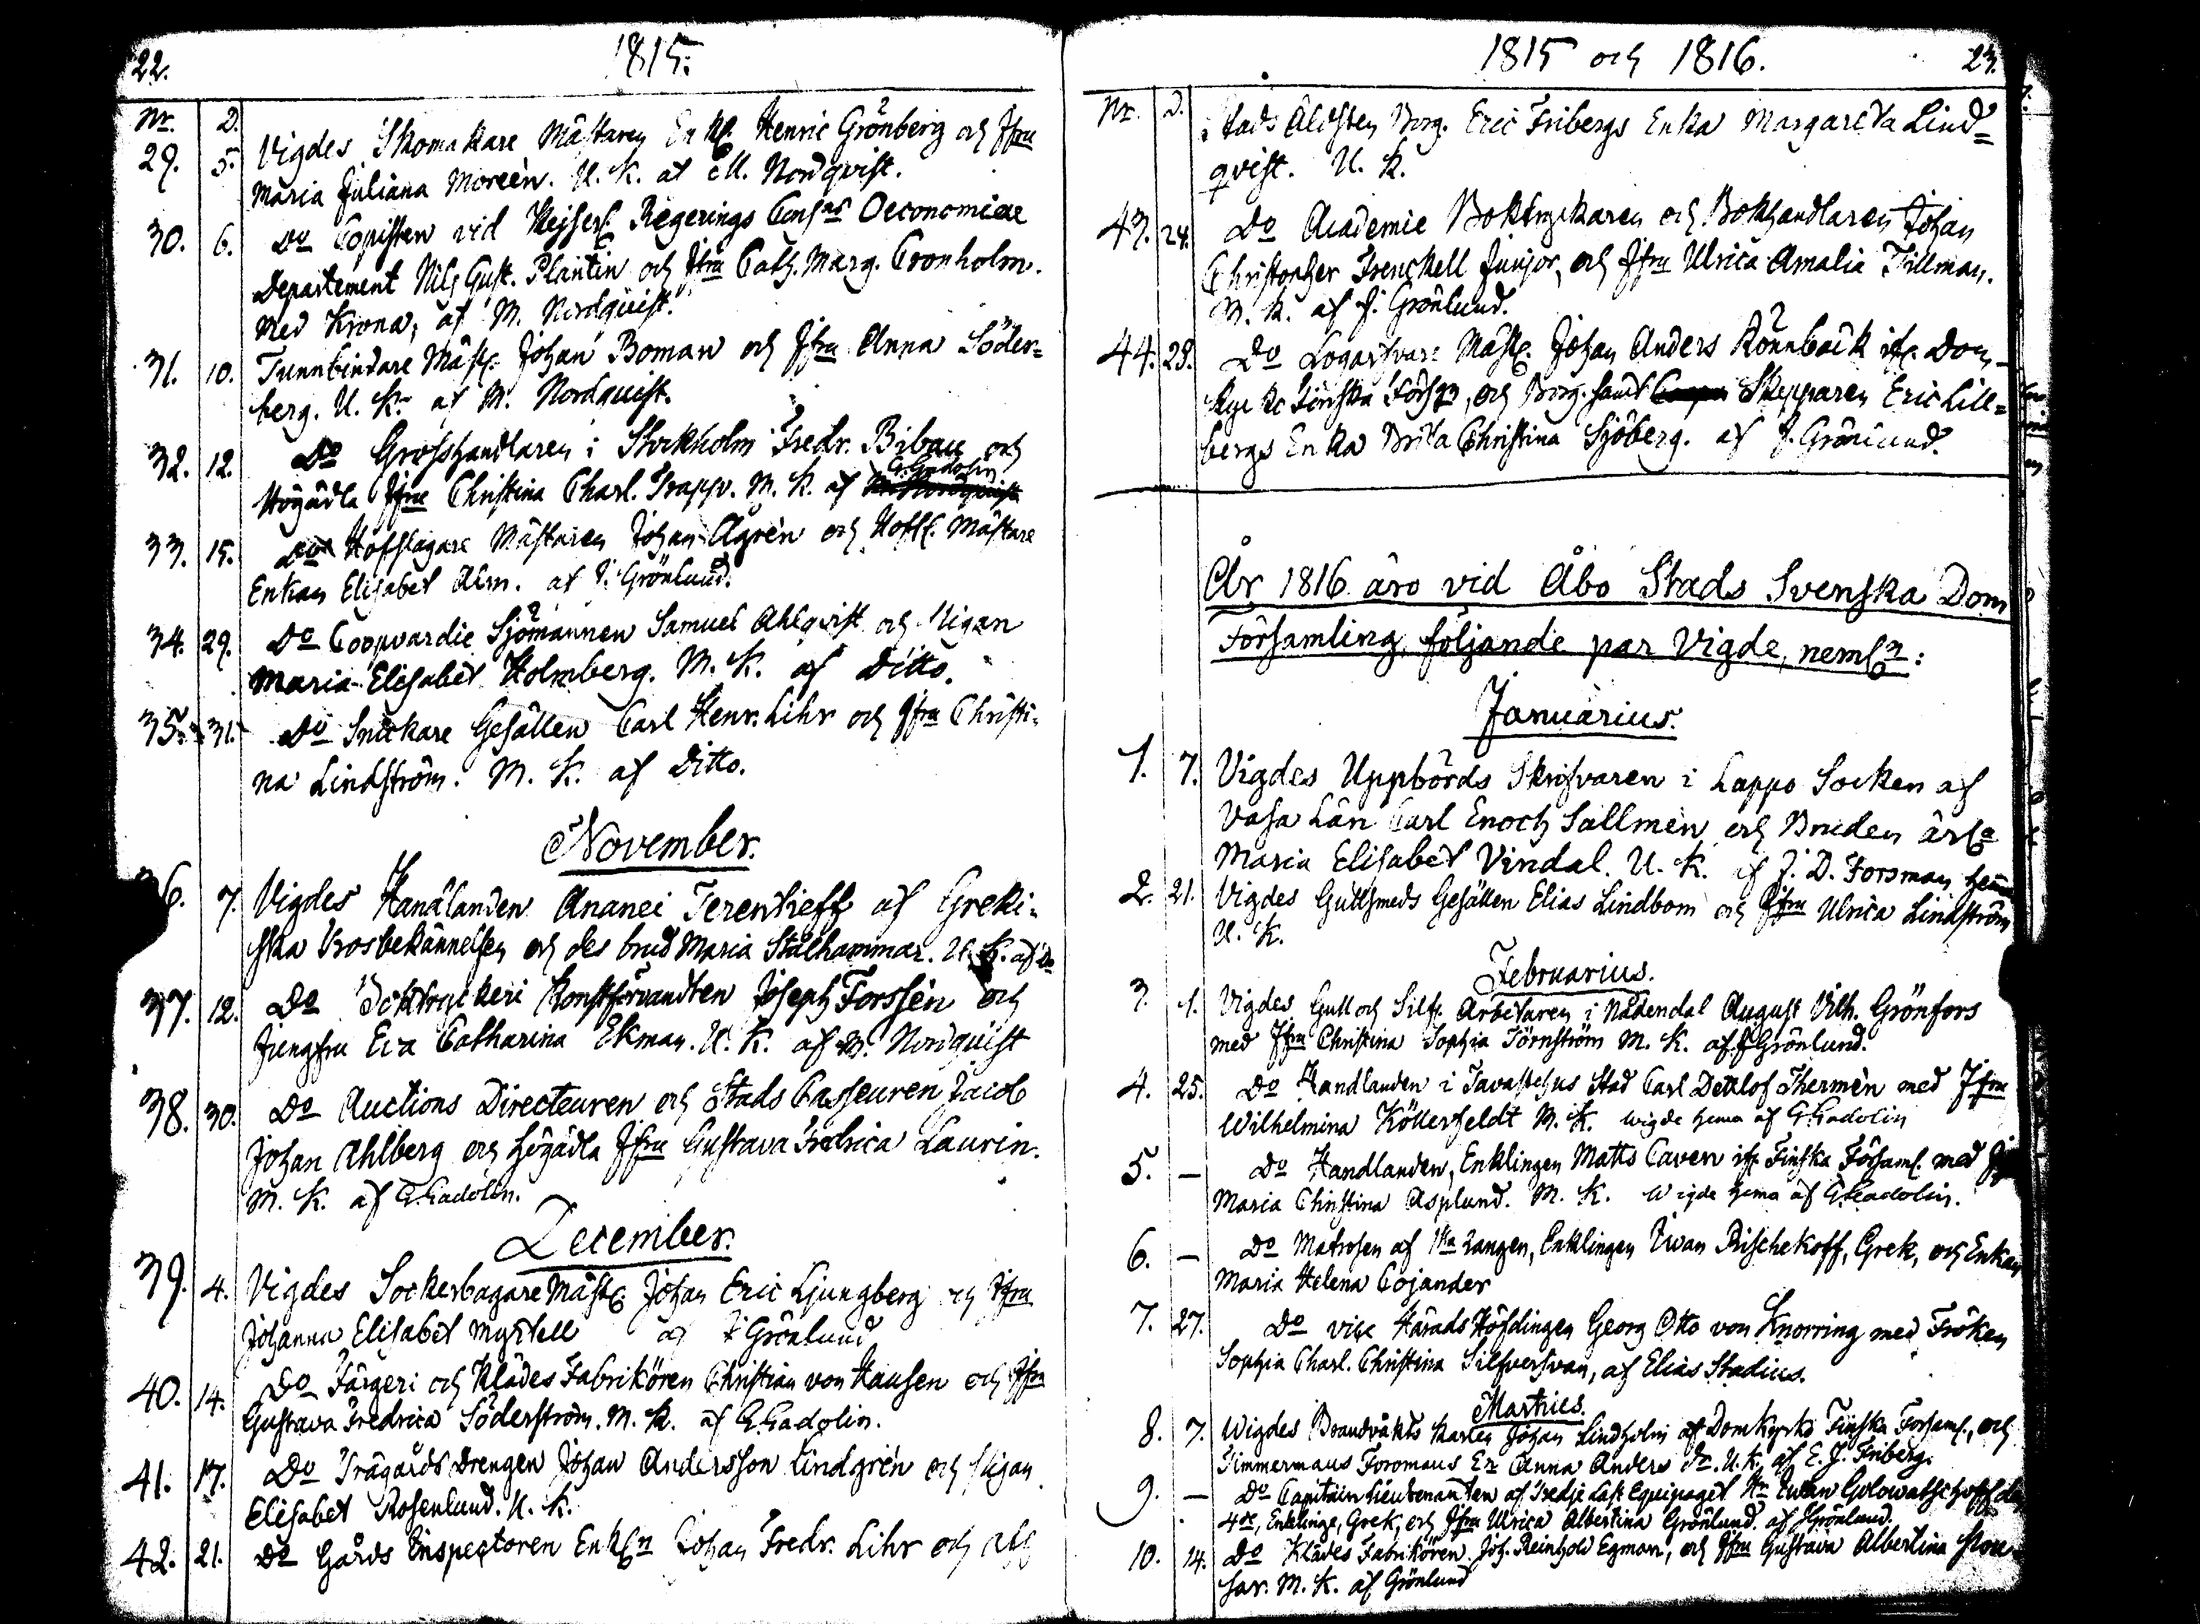 22.
1815.
Nr. D.
29. 5. Vigdes Skomakare Mästaren Enkl. Henric Grönberg och Jfru
Maria Juliana Moreèn. U. K. af M. Nordqvist.
30. 6. Do Copisten vid Kejserl. Regerings Consns Oeconomiae
Departement Nils Gust. Plantin och Jfru Cath. Marg. Cronholm.
med Krona, af M. Nordquist.
31. 10. Tunnbindare Mäst. Johan Boman och Jfru Anna Söder=
berg. U. K. af M. Nordquist.
32. 12. Do Grosshandlaren i Stockholm Fredr. Bibau och
Högädla Jfru Christina Charl. Trapp. M. K. af G. Gadolin
33. 15. Do Hofslagare Mästaren Johan Ågrèn och Hofsl. Mästare
Enkan Elisabet Alm. af J. Grönlund.
34. 29. Do Coopvardie Sjömannen Samuel Ahlqvist och Pigan
Maria Elisabet Holmberg. M. K. af Ditto.
35. 31. Do Snickare Gesällen Carl Henr. Lihr och Jfru Christi=
na Lindström. M. K. af Ditto.
November.
36. 7. Vigdes Handlanden Ananei Terentieff af Greki=
ska Trosbekännelsen och des brud Maria Stålhammar. U. K. af Do
37. 12. Do Boktryckeri Konstförvandten Joseph Forssèn och
Jungfru Eva Catharina Ekman. U. K. af M. Nordquist
38. 30. Do Auctions Directeuren och Stads Casseuren Jacob
Johan Ahlberg och högädla Jfru Gustava Fredrica Laurin.
M. K. af G. Gadolin.
December.
39. 4. Vigdes Sockerbagare Mäst. Johan Eric Ljungberg och Jfru
Johanna Elisabet Myrtell af J. Grönlund
40. 14. Do Färgeri och Klädes Fabrikören Christian von Hausen och Jfru
Gustava Fredrica Söderström. M. K. af G. Gadolin.
41. 17. Do Trägårds Drengen Johan Andersson Lindgrèn och Pigan
Elisabet Rosenlund. U. K.
42. 21. Do Gårds Inspectoren Enkln Johan Fredr. Lihr och
1815 och 1816.
23.
Nr. D.
Stads Äldsten Borg. Eric Fribergs Enka Margareta Lind=
qvist. U. K.
43. 24. Do Academie Boktryckaren och Bokhandlaren Johan
Christopher Frenckell Junior, och Jfru Ulrica Amalia Tillman.
M. K. af J. Grönlund.
44. 28. Do Logarfvar= Mäst. Johan Anders Rönnbäck ifr. Dom-
kyrko Finska Förs., och Borg. samt Skepparen Eric Lill=
bergs Enka Brita Christina Sjöberg. af J. Grönlund.
År 1816 äro vid Åbo Stads Svenska Dom
Församling följande par Vigde, nemln:
Januarius.
1. 7. Vigdes Uppbörds Skrifvaren i Lappo Socken af
Vasa Län Carl Enoch Sallmèn och Bruden ärl.
Maria Elisabet Vindal. U. K. af J. D. Forsman hemma
2. 21. Vigdes Guldsmeds Gesällen Elias Lindbom och Jfru Ulrica Lindström
U. K.
Februarius.
3. 1. Vigdes Gull och Silf. Arbetaren i Nådendal August Vilh. Grönfors
med Jfru Christina Sophia Törnström M. K. af J Grönlund.
4. 25. Do Handlanden i Tavastehus Stad Carl Detlof Thermèn med Jfru
Wilhelmina Köllerfeldt M. K. wigde hema af G. Gadolin
5. — Do Handlanden, Enklingen Matts Caven ifr. Finska Församl. med
Maria Christina Asplund. M. K. Wigde hema af G. Gadolin.
6. — Do Matrosen af Enklingen Iwan Rischekoff, Grek, och Enkan
Maria Helena Cojander
7. 27. Do vice Härads Höfdingen Georg Otto von Knorring med Fröken
Sophia Charl. Christina Silfversvan, af Elias Stadius.
Martius.
8. 7. Wigdes Brandvakts Karlen Johan Lindholm af Domkyrko Finska Forsaml., och
Timmermans Foromans Anna Anders dr. U. K. af E. J. Friberg.
9. — Do Capitain Lieutenanten af Tredje Last Equipaget Iwan Golowatschoff
4de, Enklinge, Grek, och Jfru Ulrica Albertina Grönlund. af J Grönlund.
10. 14. Do Klädes Fabrikören Joh. Reinhold Egman, och Jfru Gustava Albertina
M. K. af Grönlund